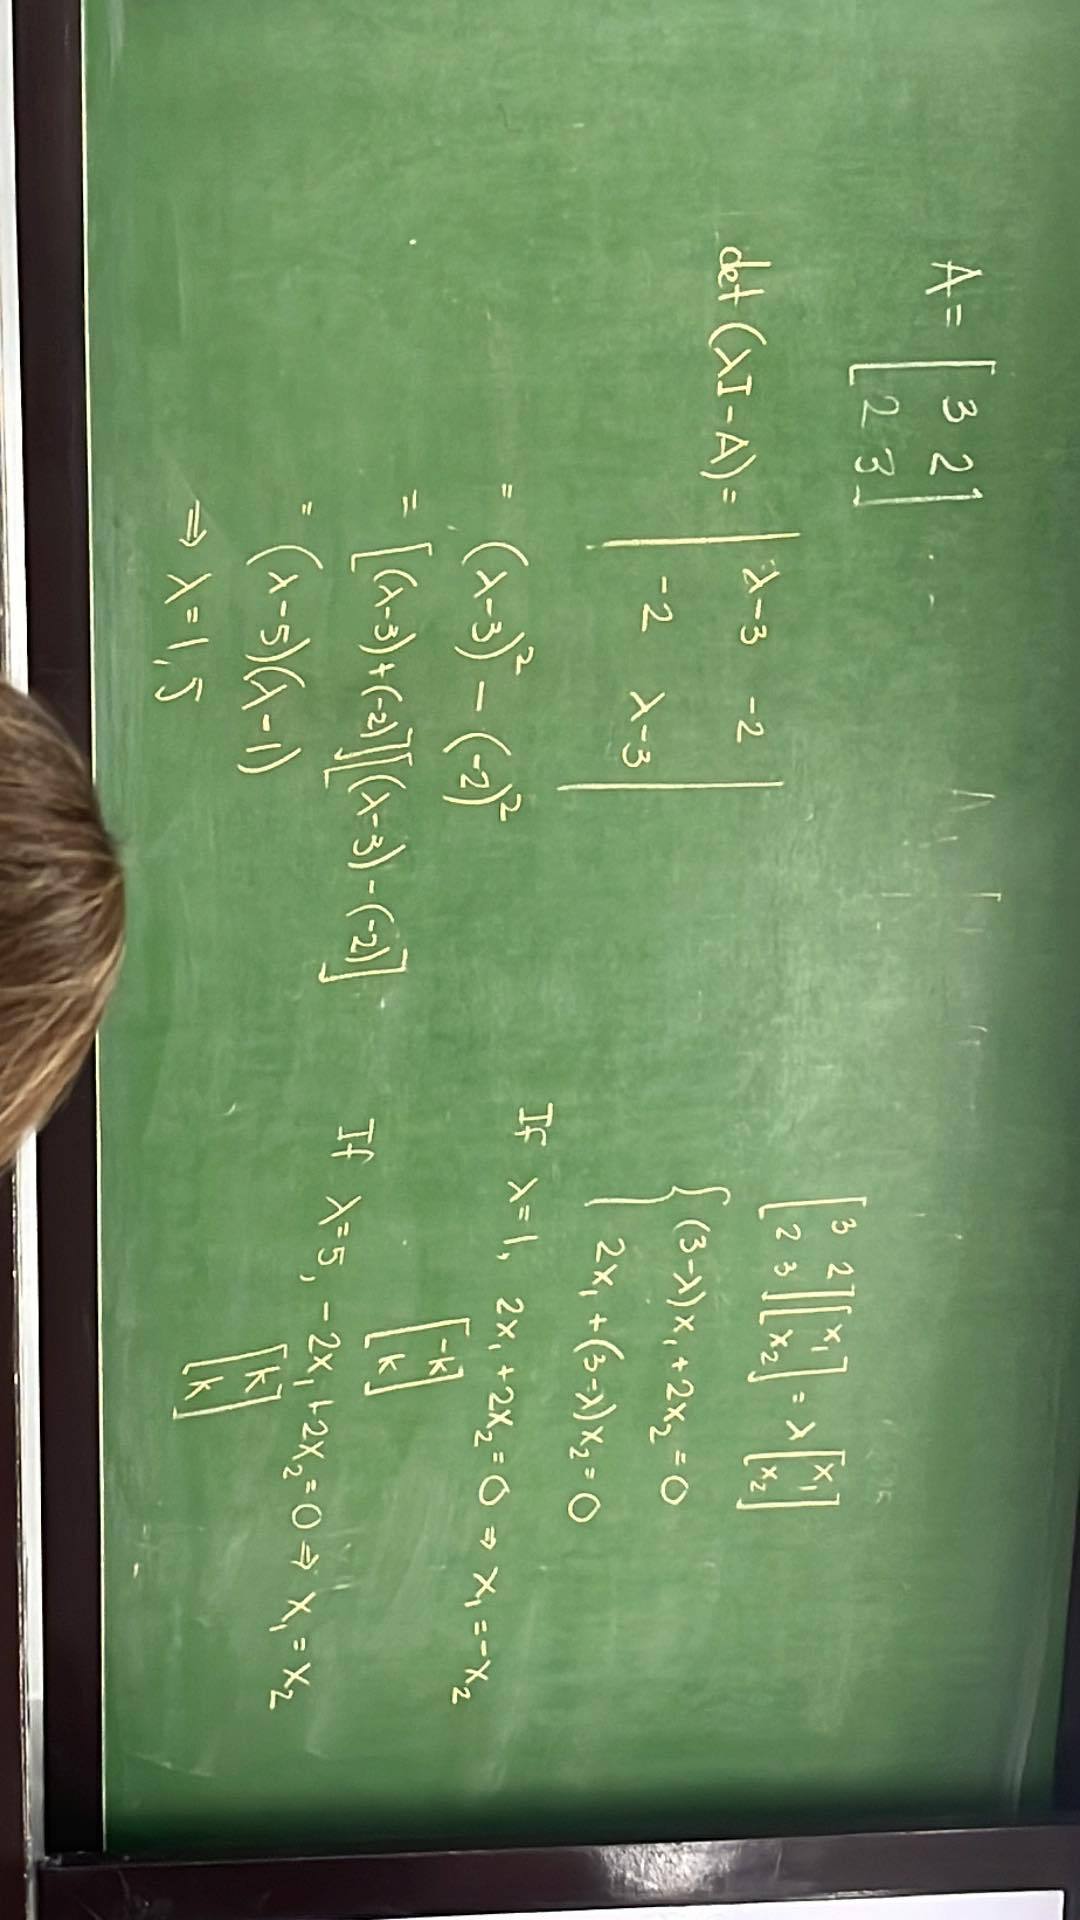 A = [ 3 2
2 3 ]
det (λI - A) = | λ-3 -2
-2 λ-3 |
= (λ-3)² - (-2)²
= [(λ-3)+(-2)][(λ-3)-(-2)]
= (λ-5)(λ-1)
⇒ λ = 1, 5
[ 3 2 ] [ x₁ ] = λ [ x₁ ]
[ 2 3 ] [ x₂ ] [ x₂ ]
{ (3-λ)x₁ + 2x₂ = 0
2x₁ + (3-λ)x₂ = 0
If λ=1, 2x₁ + 2x₂ = 0 ⇒ x₁ = -x₂
[ -k
k ]
If λ=5, -2x₁ + 2x₂ = 0 ⇒ x₁ = x₂
[ k
k ]